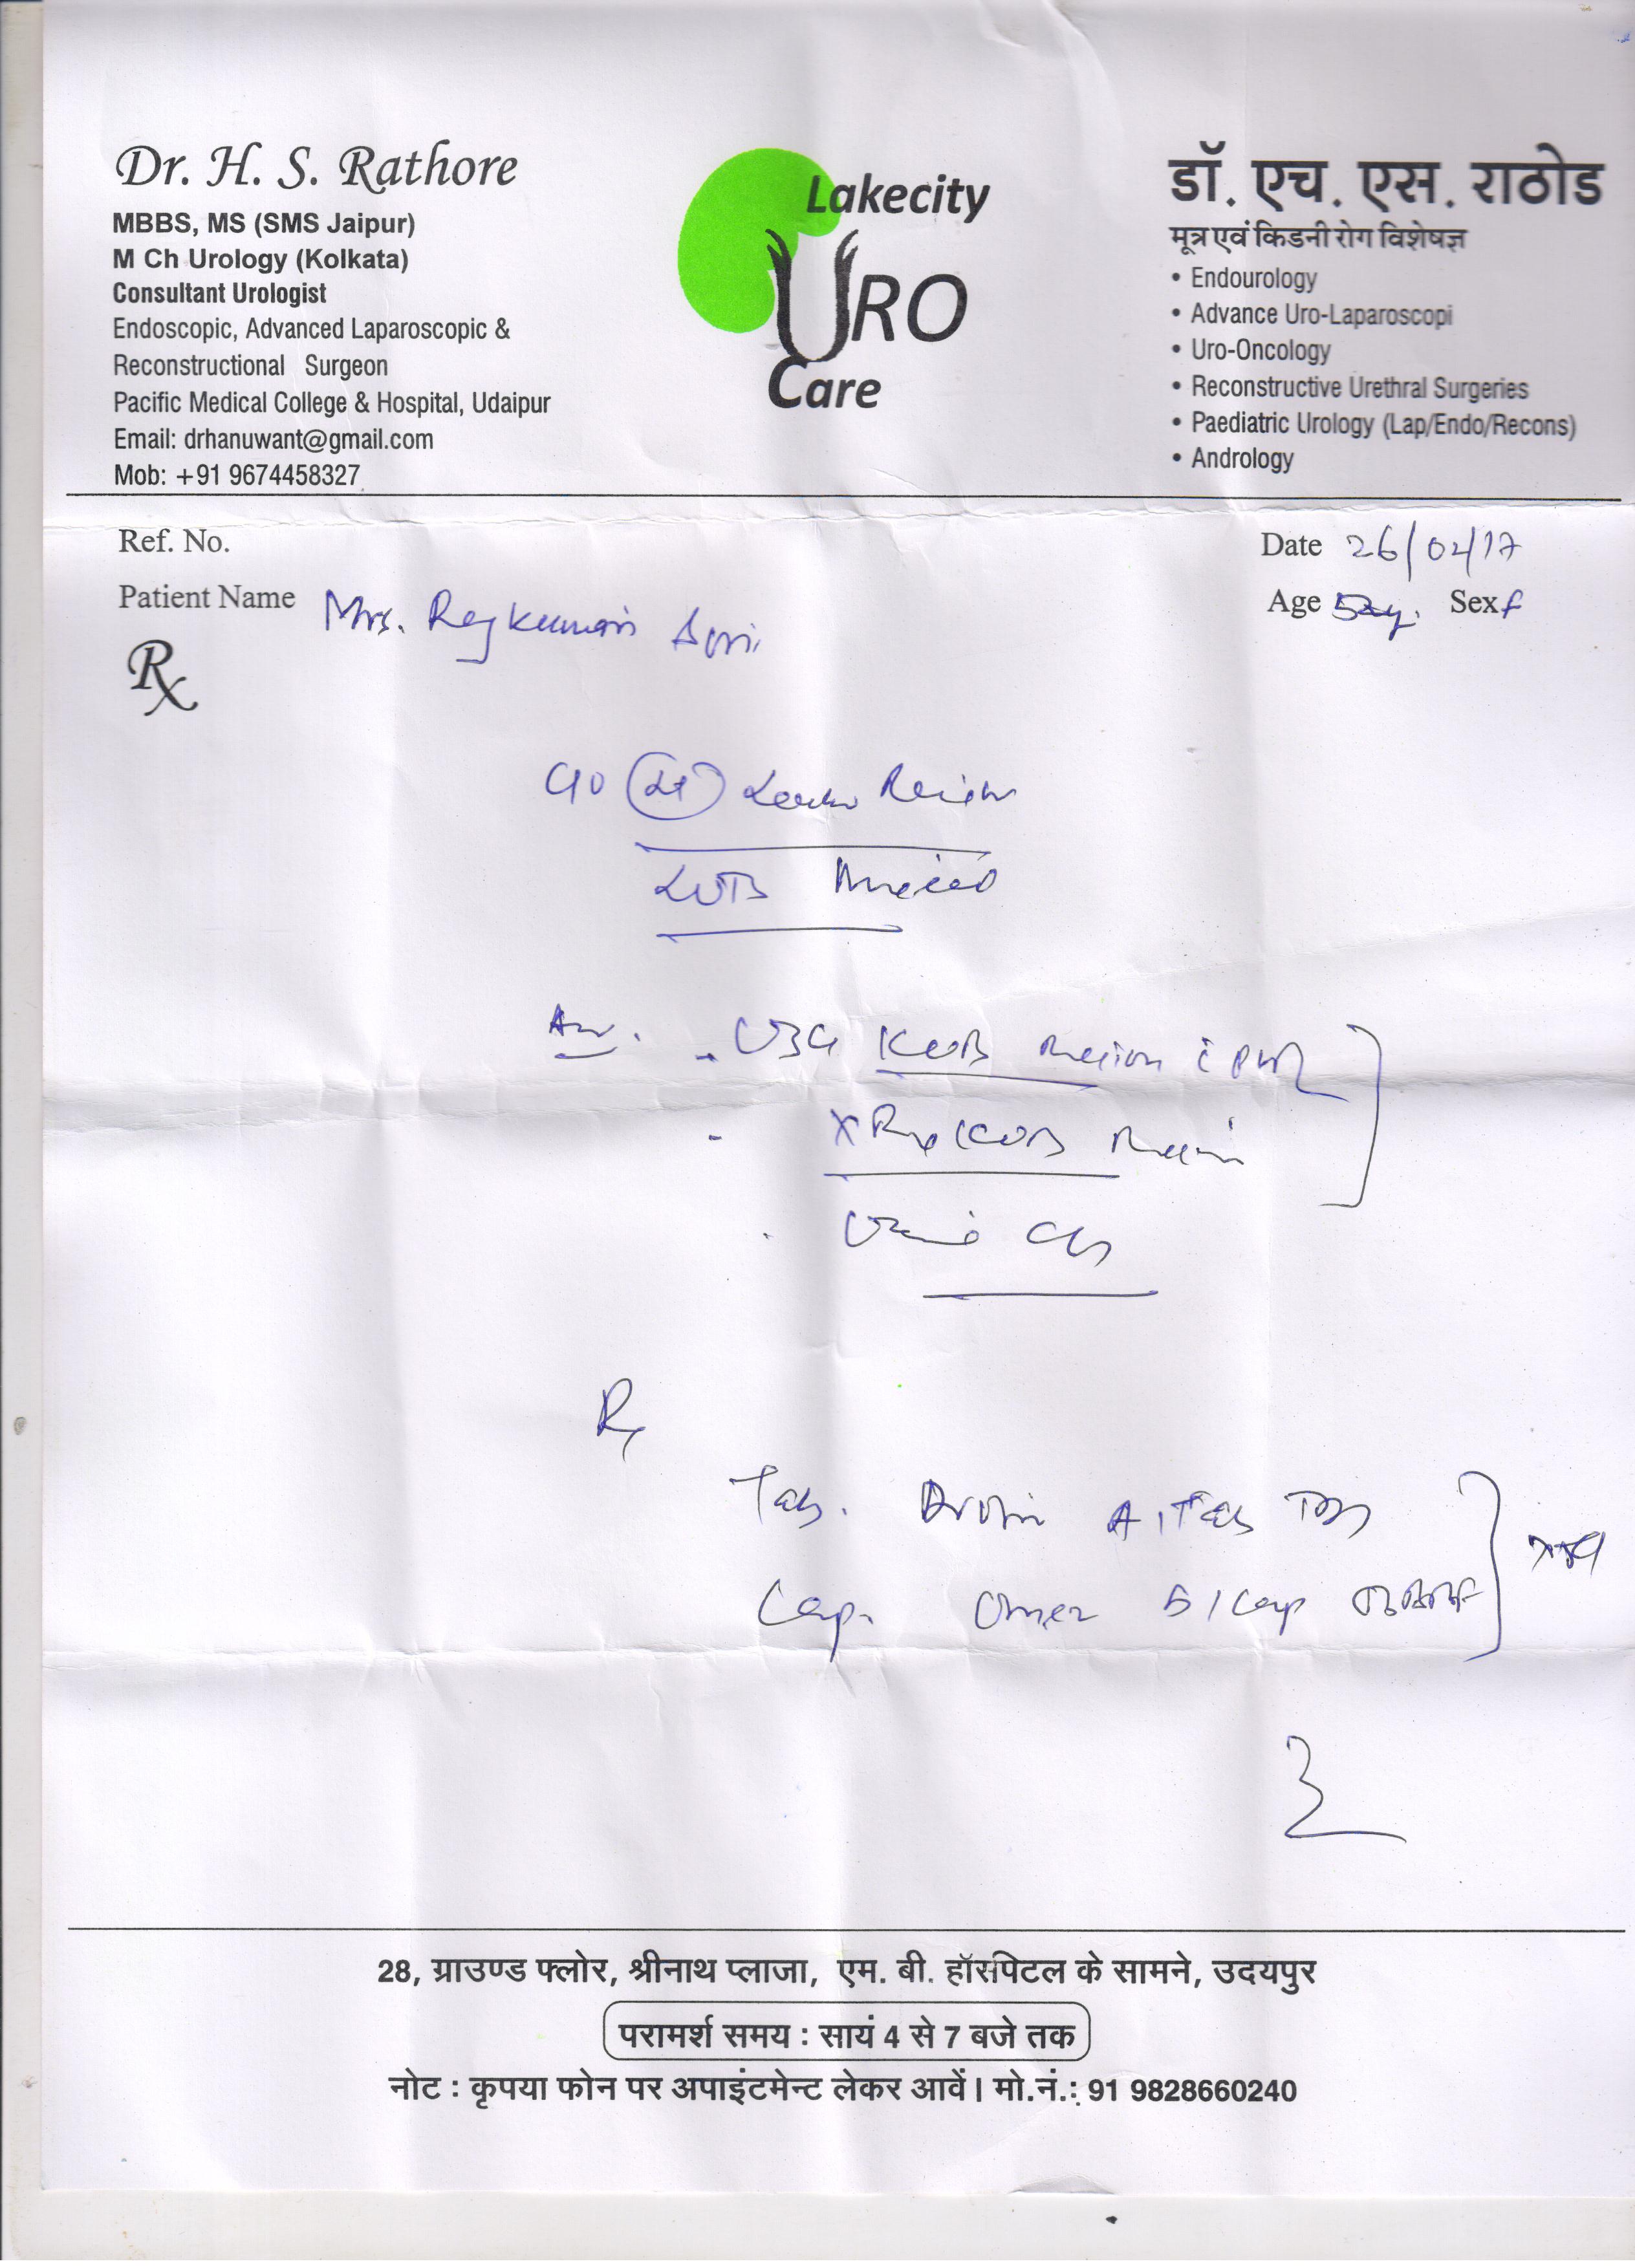 Dr. H. S. Rathore
MBBS, MS (SMS Jaipur)
M Ch Urology (Kolkata)
Consultant Urologist
Endoscopic, Advanced Laparoscopic &
Reconstructional Surgeon
Pacific Medical College & Hospital, Udaipur
Email: drhanuwant@gmail.com
Mob: +91 9674458327
Lakecity
URO
Care
डॉ. एच. एस. राठोड
मूत्र एवं किडनी रोग विशेषज्ञ
• Endourology
• Advance Uro-Laparoscopi
• Uro-Oncology
• Reconstructive Urethral Surgeries
• Paediatric Urology (Lap/Endo/Recons)
• Andrology
Ref. No.
Date 26/04/17
Patient Name Mrs. Rajkumari Soni
Age Sex F
Rx
C/O (Lt)
LUTS
Adv. - USG KUB Region
- X Ray KUB Region
. Urine C/S
Rx
Tab. 1 Tab TDS
Cap. Omez 1 Cap
28, ग्राउण्ड फ्लोर, श्रीनाथ प्लाजा, एम. बी. हॉसपिटल के सामने, उदयपुर
परामर्श समय : सायं 4 से 7 बजे तक
नोट : कृपया फोन पर अपाइंटमेन्ट लेकर आवें। मो.नं.: 91 9828660240